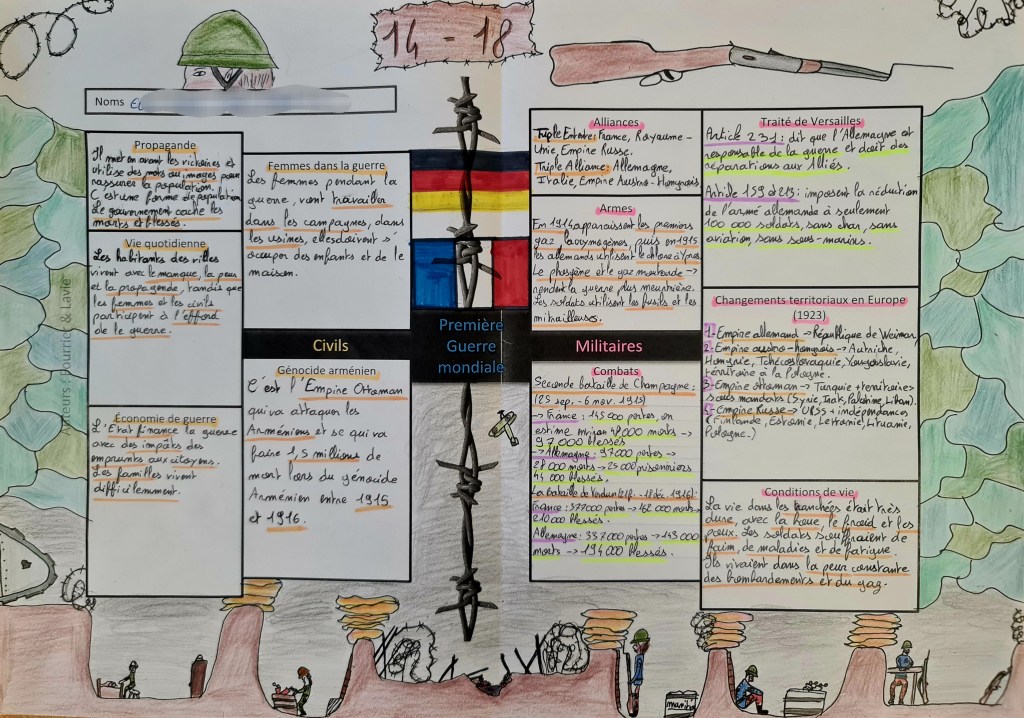 14 - 18
Noms
Propagande
Il met en avant les victoires et
utilise des mots ou images pour
rassurer la population.
C'est une forme de population
Le gouvernement cache les
morts et blessés.
Vie quotidienne
Les habitants des villes
vivent avec le manque, la peur
et la propagende, tandis que
les femmes et les civils
participent à l'effond
de le guerre.
Économie de guerre
L'État finance la guerre
avec des impâts des
emprunts aux citoyens.
Les familles vivent
difficilement.
Femmes dans la guerre
Les femmes pendant la
guerre, vont travailler
dans les campagnes, dans
les usines, elles doivent s'
occuper des enfants et de le
maison.
Civils
Génocide arménien
C'est l'Empire Ottoman
qui va attaquer les
Arméniens et se qui va
faire 1,5 millions de
mort lors du génocide
Arménien entre 1915
et 1916.
Première
Guerre
mondiale
Militaires
Alliances
Triple Entente: France, Royaume-
Unie, Empire Russe.
Triple Alliance: Allemagne,
Italie, Empire Austro-Hongrois
Armes
En 1914 apparaissent les premiers
gaz lacrymogènes, puis en 1915
les allemands utilisent le chlore à Ypres.
Le phosgène et le gaz moutarde →
rendent la guerre plus meurtrière.
Les soldats utilisent les fusils et les
mitrailleuses.
Combats
Seconde bataille de Champagne:
(25 sep. - 6 nov. 1915)
→ France: 145 000 pertes, on
estime environ 48 000 morts →
97 000 blessés
→ Allemagne: 97 000 pertes →
28 000 morts → 25 000 prisonniers
44 000 blessés.
La bataille de Verdun (21 f. - 18 déc. 1916):
France: 377 000 pertes → 162 000 morts →
210 000 blessés.
Allemagne: 337 000 pertes → 143 000
morts → 194 000 blessés.
Traité de Versailles
Article 231: dit que l'Allemagne est
responsable de la guerre et doit des
réparations aux Alliés.
Article 159 à 213: imposent la réduction
de l'arme allemande à seulement
100 000 soldats, sans char, sans
aviation, sans sous-marins.
Changements territoriaux en Europe
(1923)
1-Empire allemand → République de Weimar,
2-Empire austro-hongrois → Autriche,
Hongrie, Tchécoslovaquie, Yougoslavie,
territoire à la Pologne.
3-Empire ottoman → Turquie + territoires
sous mandats (Syrie, Irak, Palestine, Liban).
4-Empire Russe → URSS + indépendances
(Finlande, Estonie, Lettonie, Lituanie,
Pologne.)
Conditions de vie
La vie dans les tranchées était très
dure, avec la boue, le froid et les
poux. Les soldats souffraient de
faim, de maladies et de fatigue.
Ils vivaient dans la peur constante
des bombardements et du gaz.
Auteurs : Pourriet & Lavie